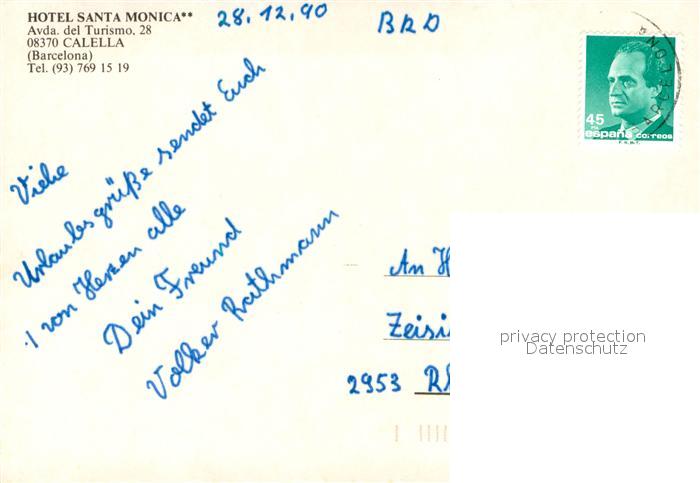 HOTEL SANTA MONICA**
Avda. del Turismo, 28
08370 CALELLA
(Barcelona)
Tel. (93) 769 15 19
28.12.90
BRD
45
españa correos
F.N.M.T.
BARCELONA
Viehe
Urlaubsgrüße sendet Euch
von Herzen alle
Dein Freund
Volker Rathmann
An H
Zeisi
2953 R
privacy protection
Datenschutz